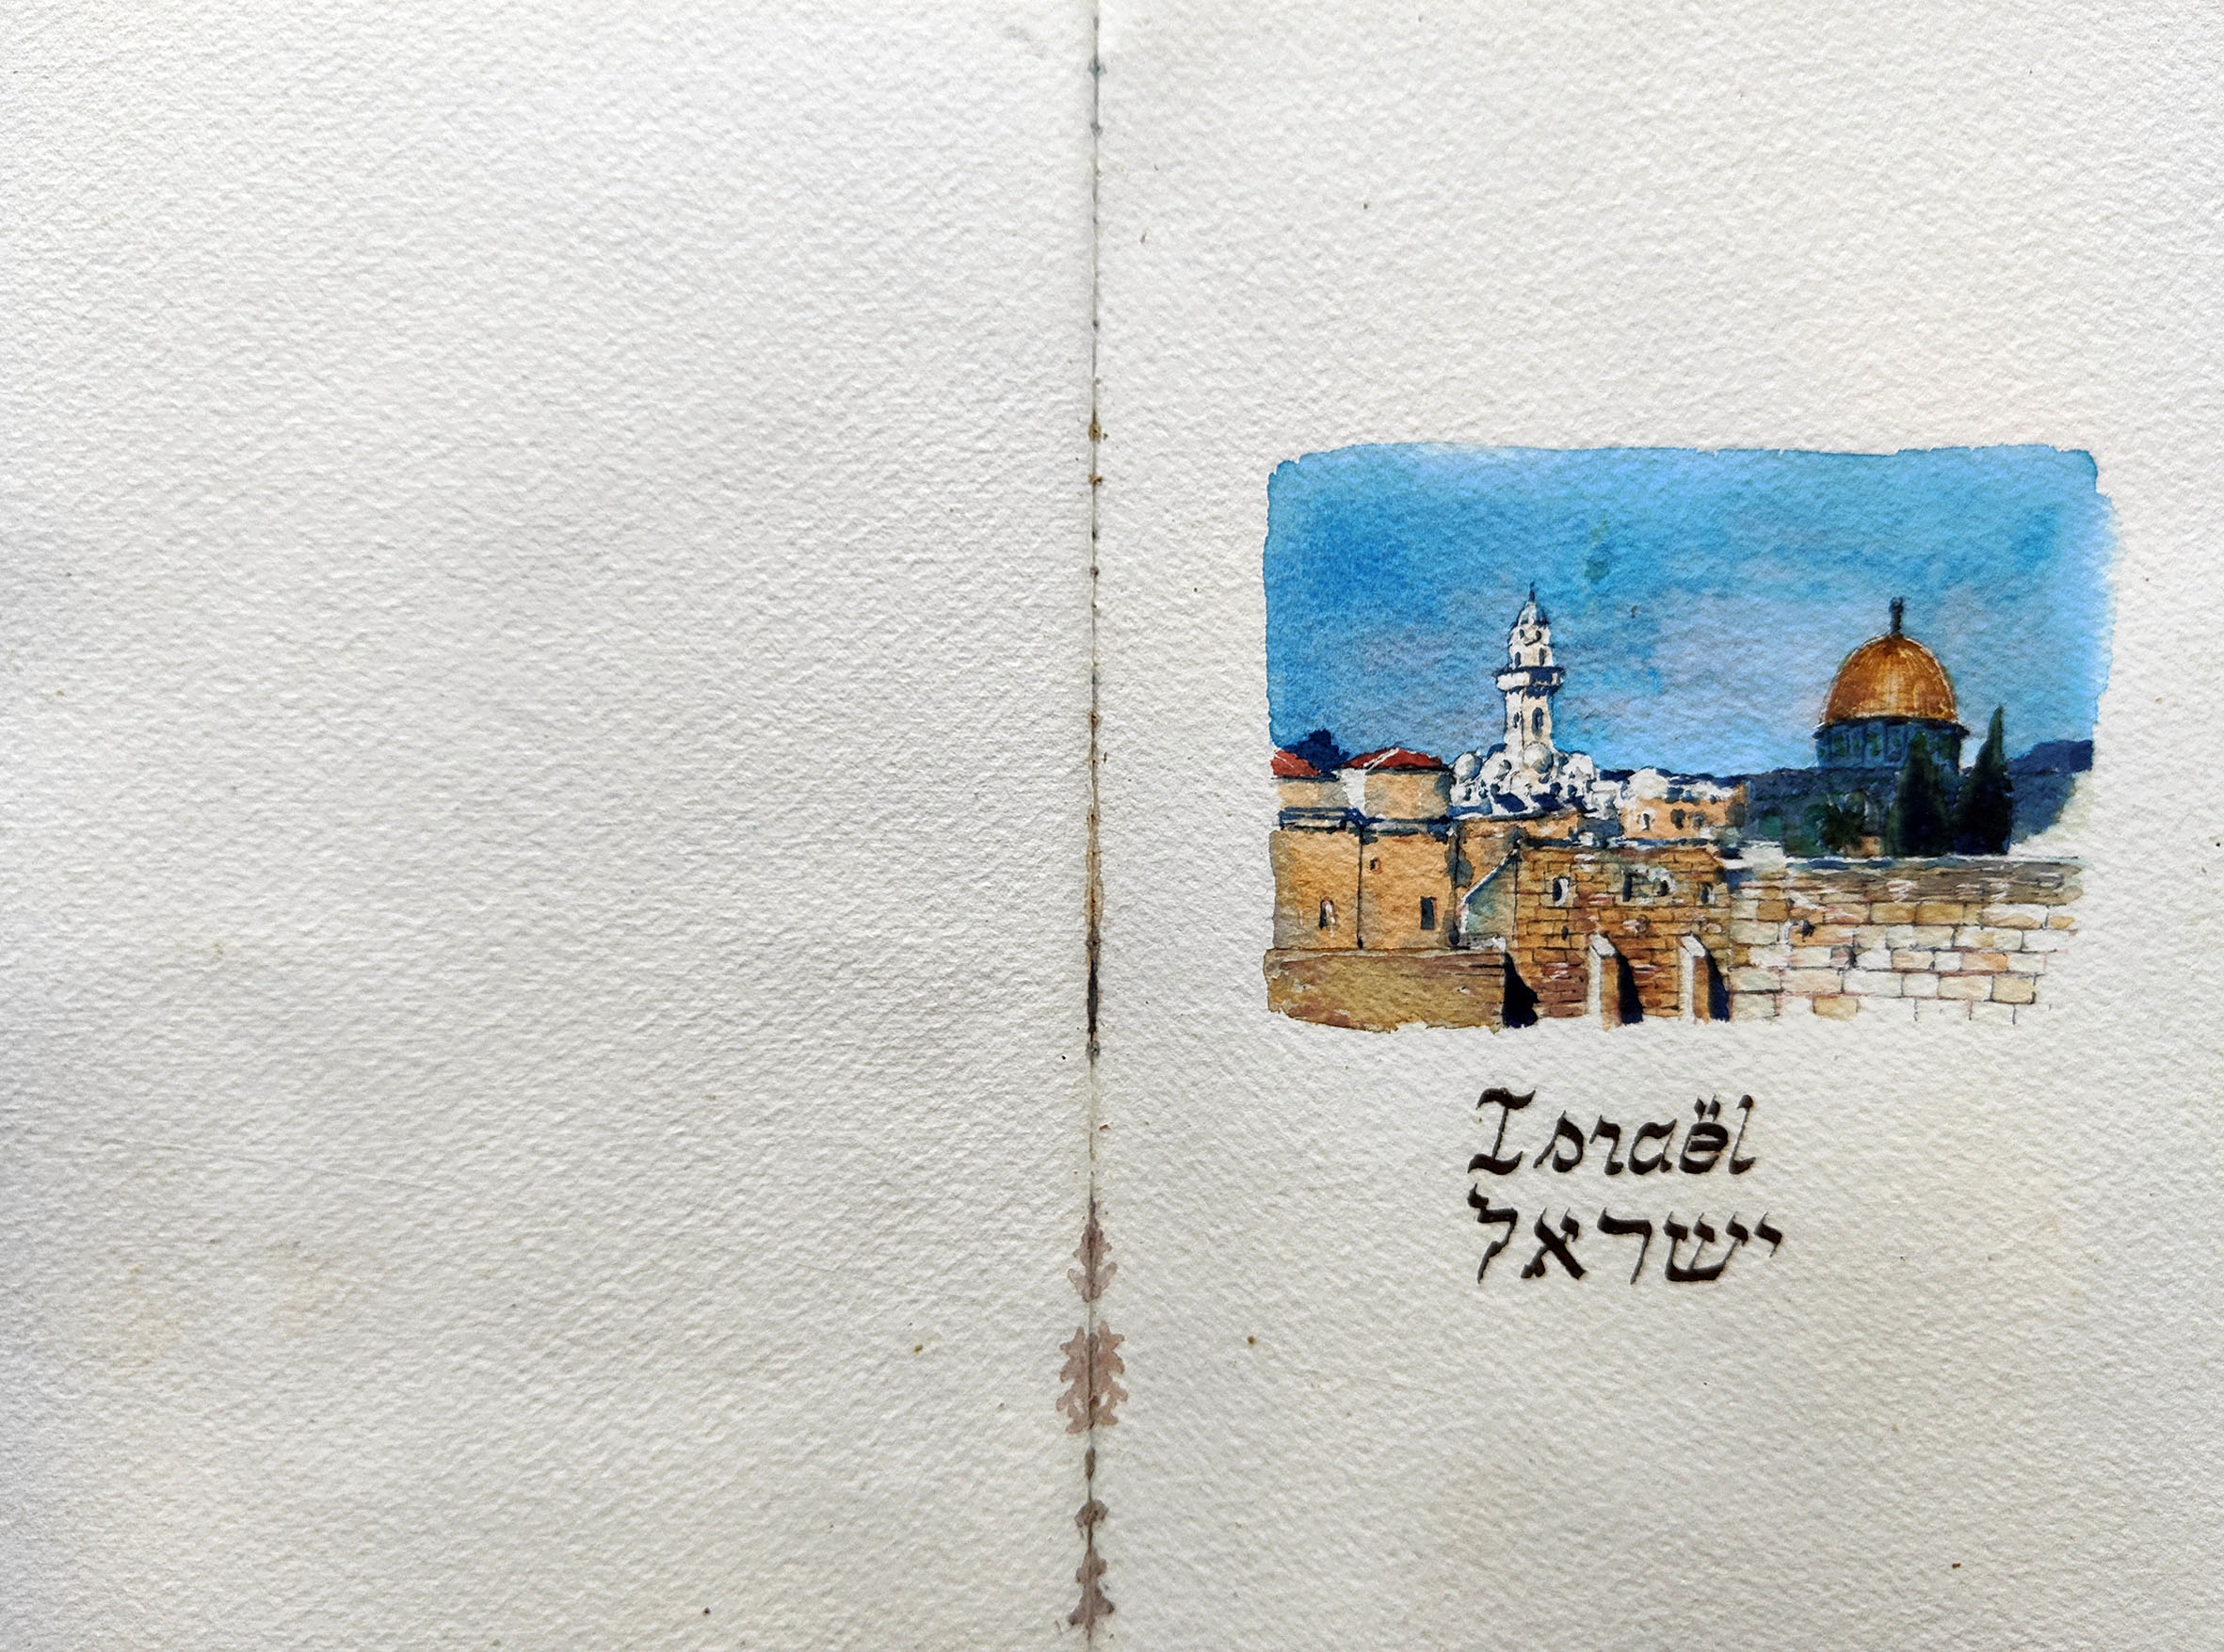 Israël
ישראל